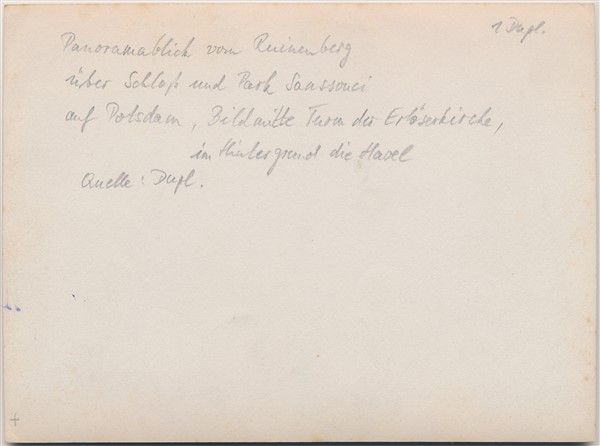 1 Dupl.
Panoramablick vom Ruinenberg
über Schloß und Park Sanssouci
auf Potsdam, Bildmitte Turm der Erlöserkirche,
im Hintergrund die Havel
Quelle: Dupl.